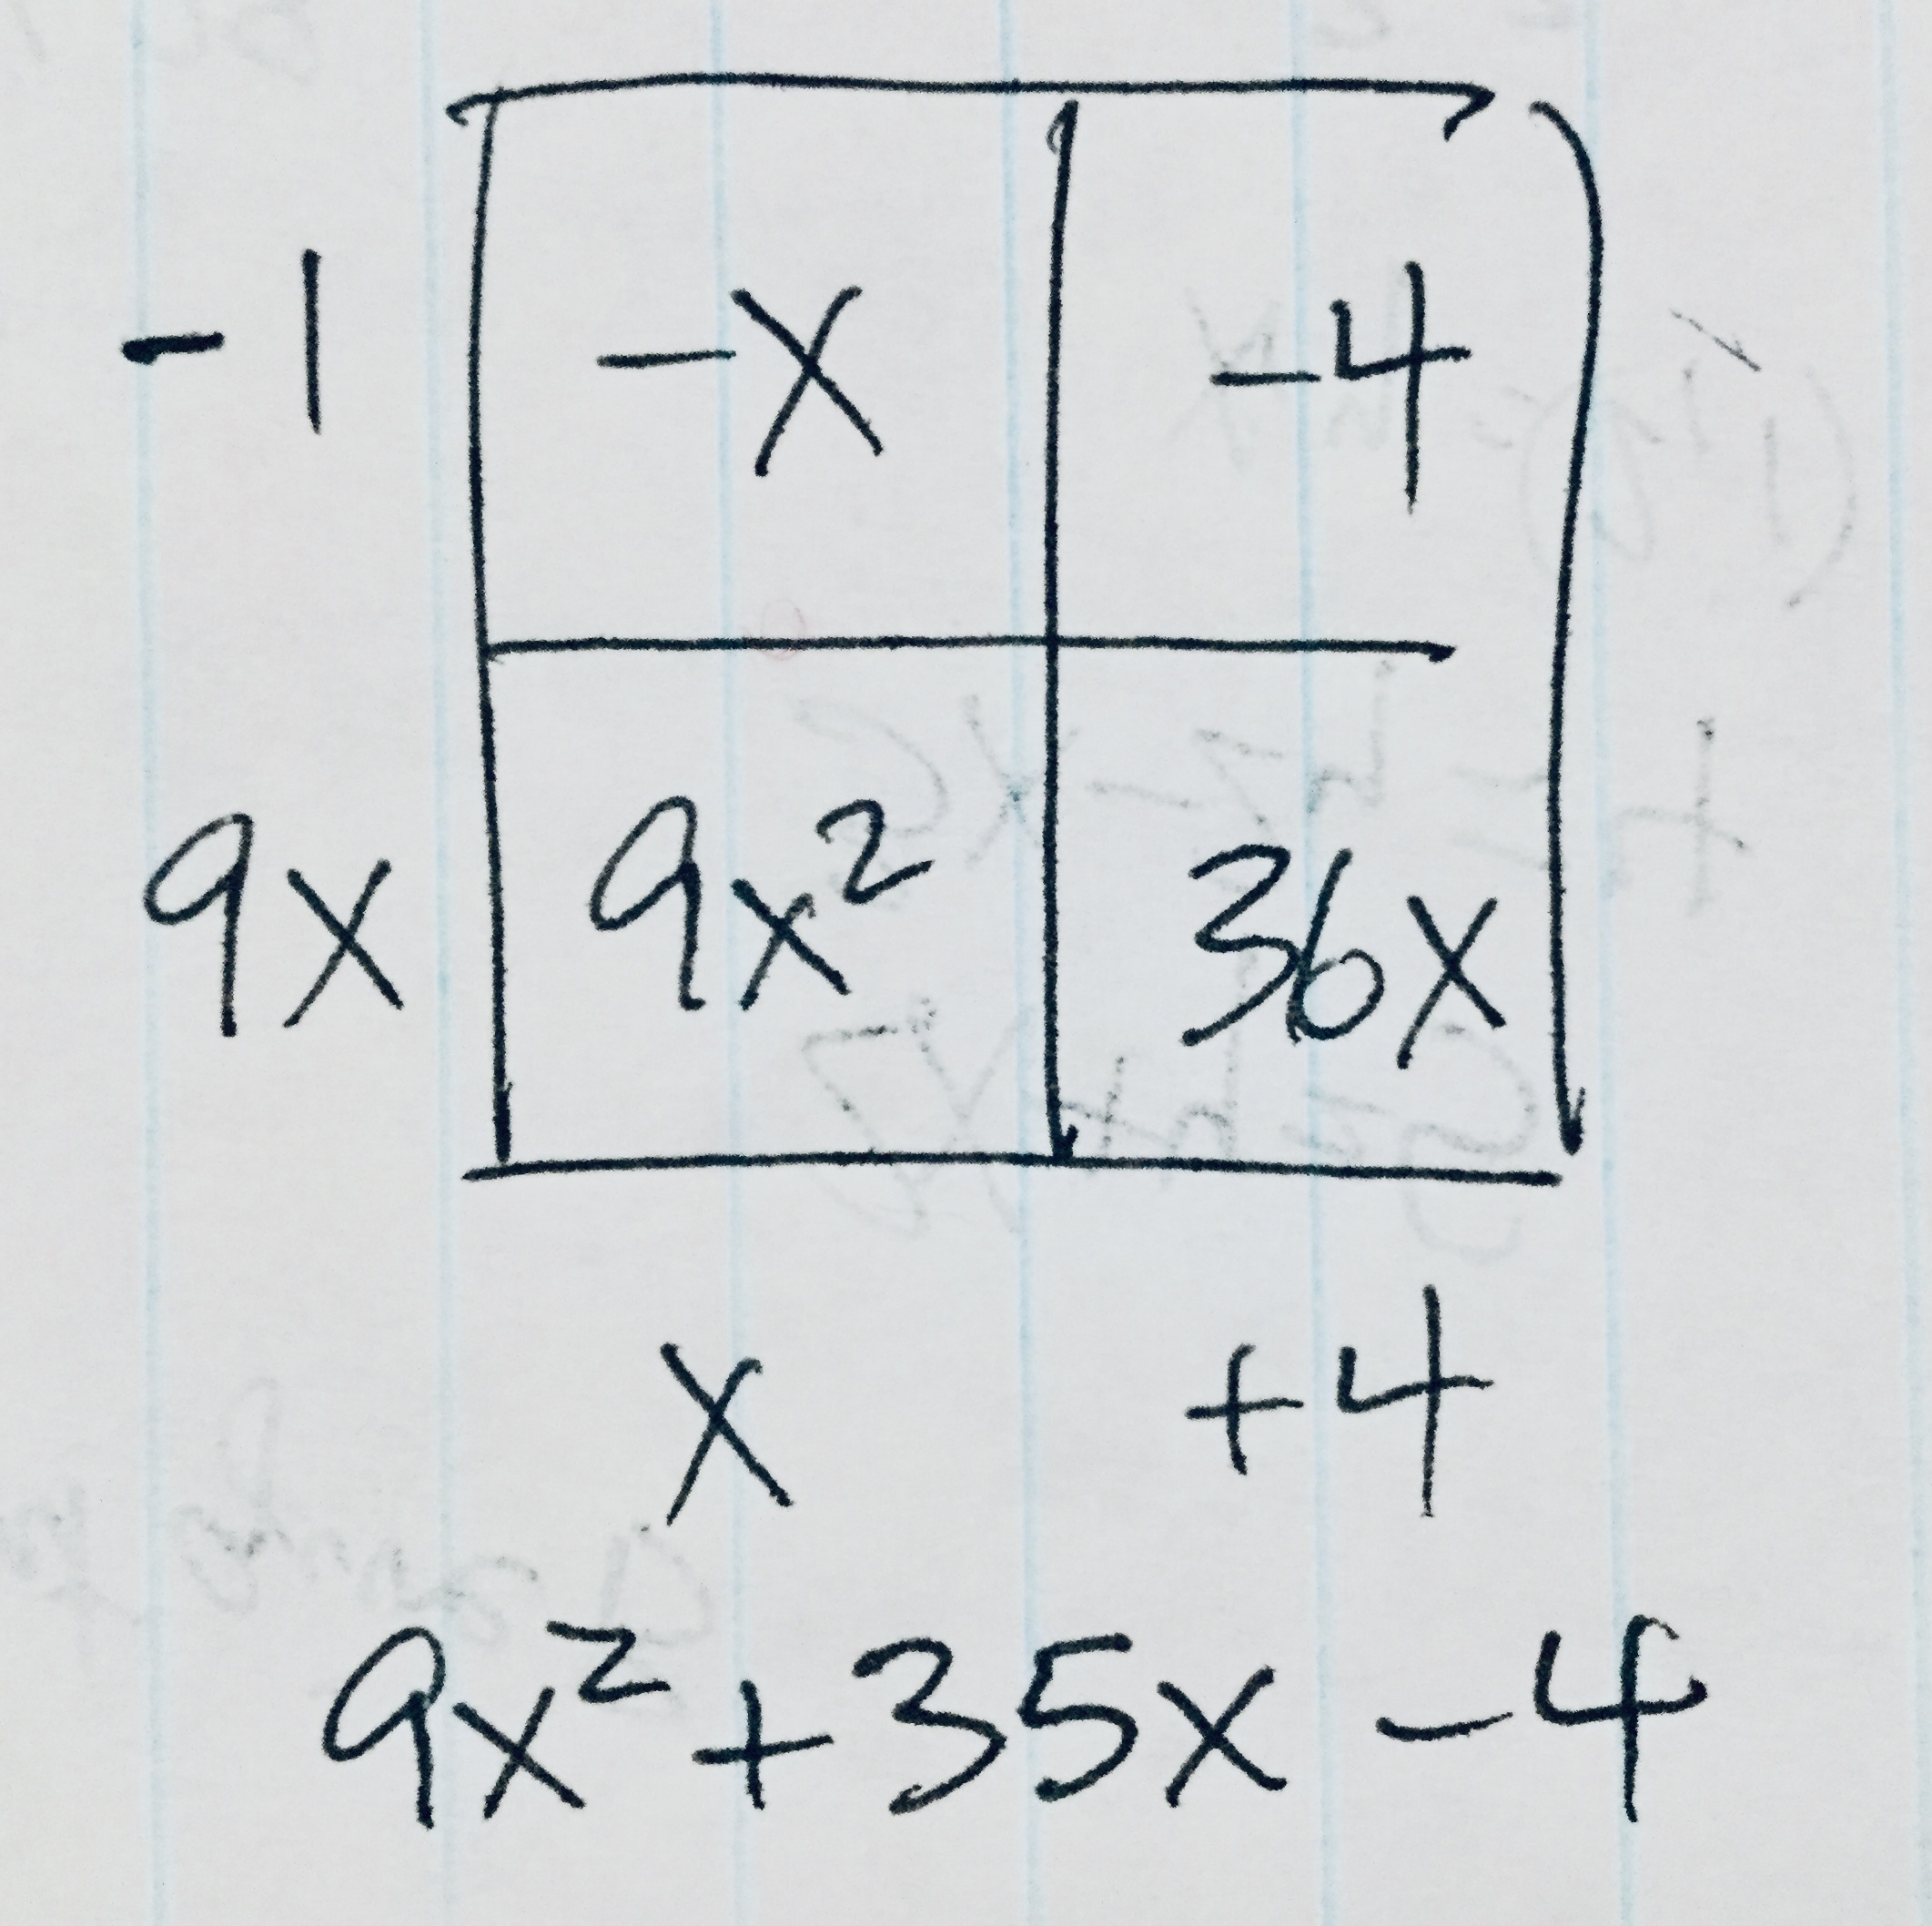 -1 -x -4
9x 9x² 36x
x +4
9x² + 35x - 4